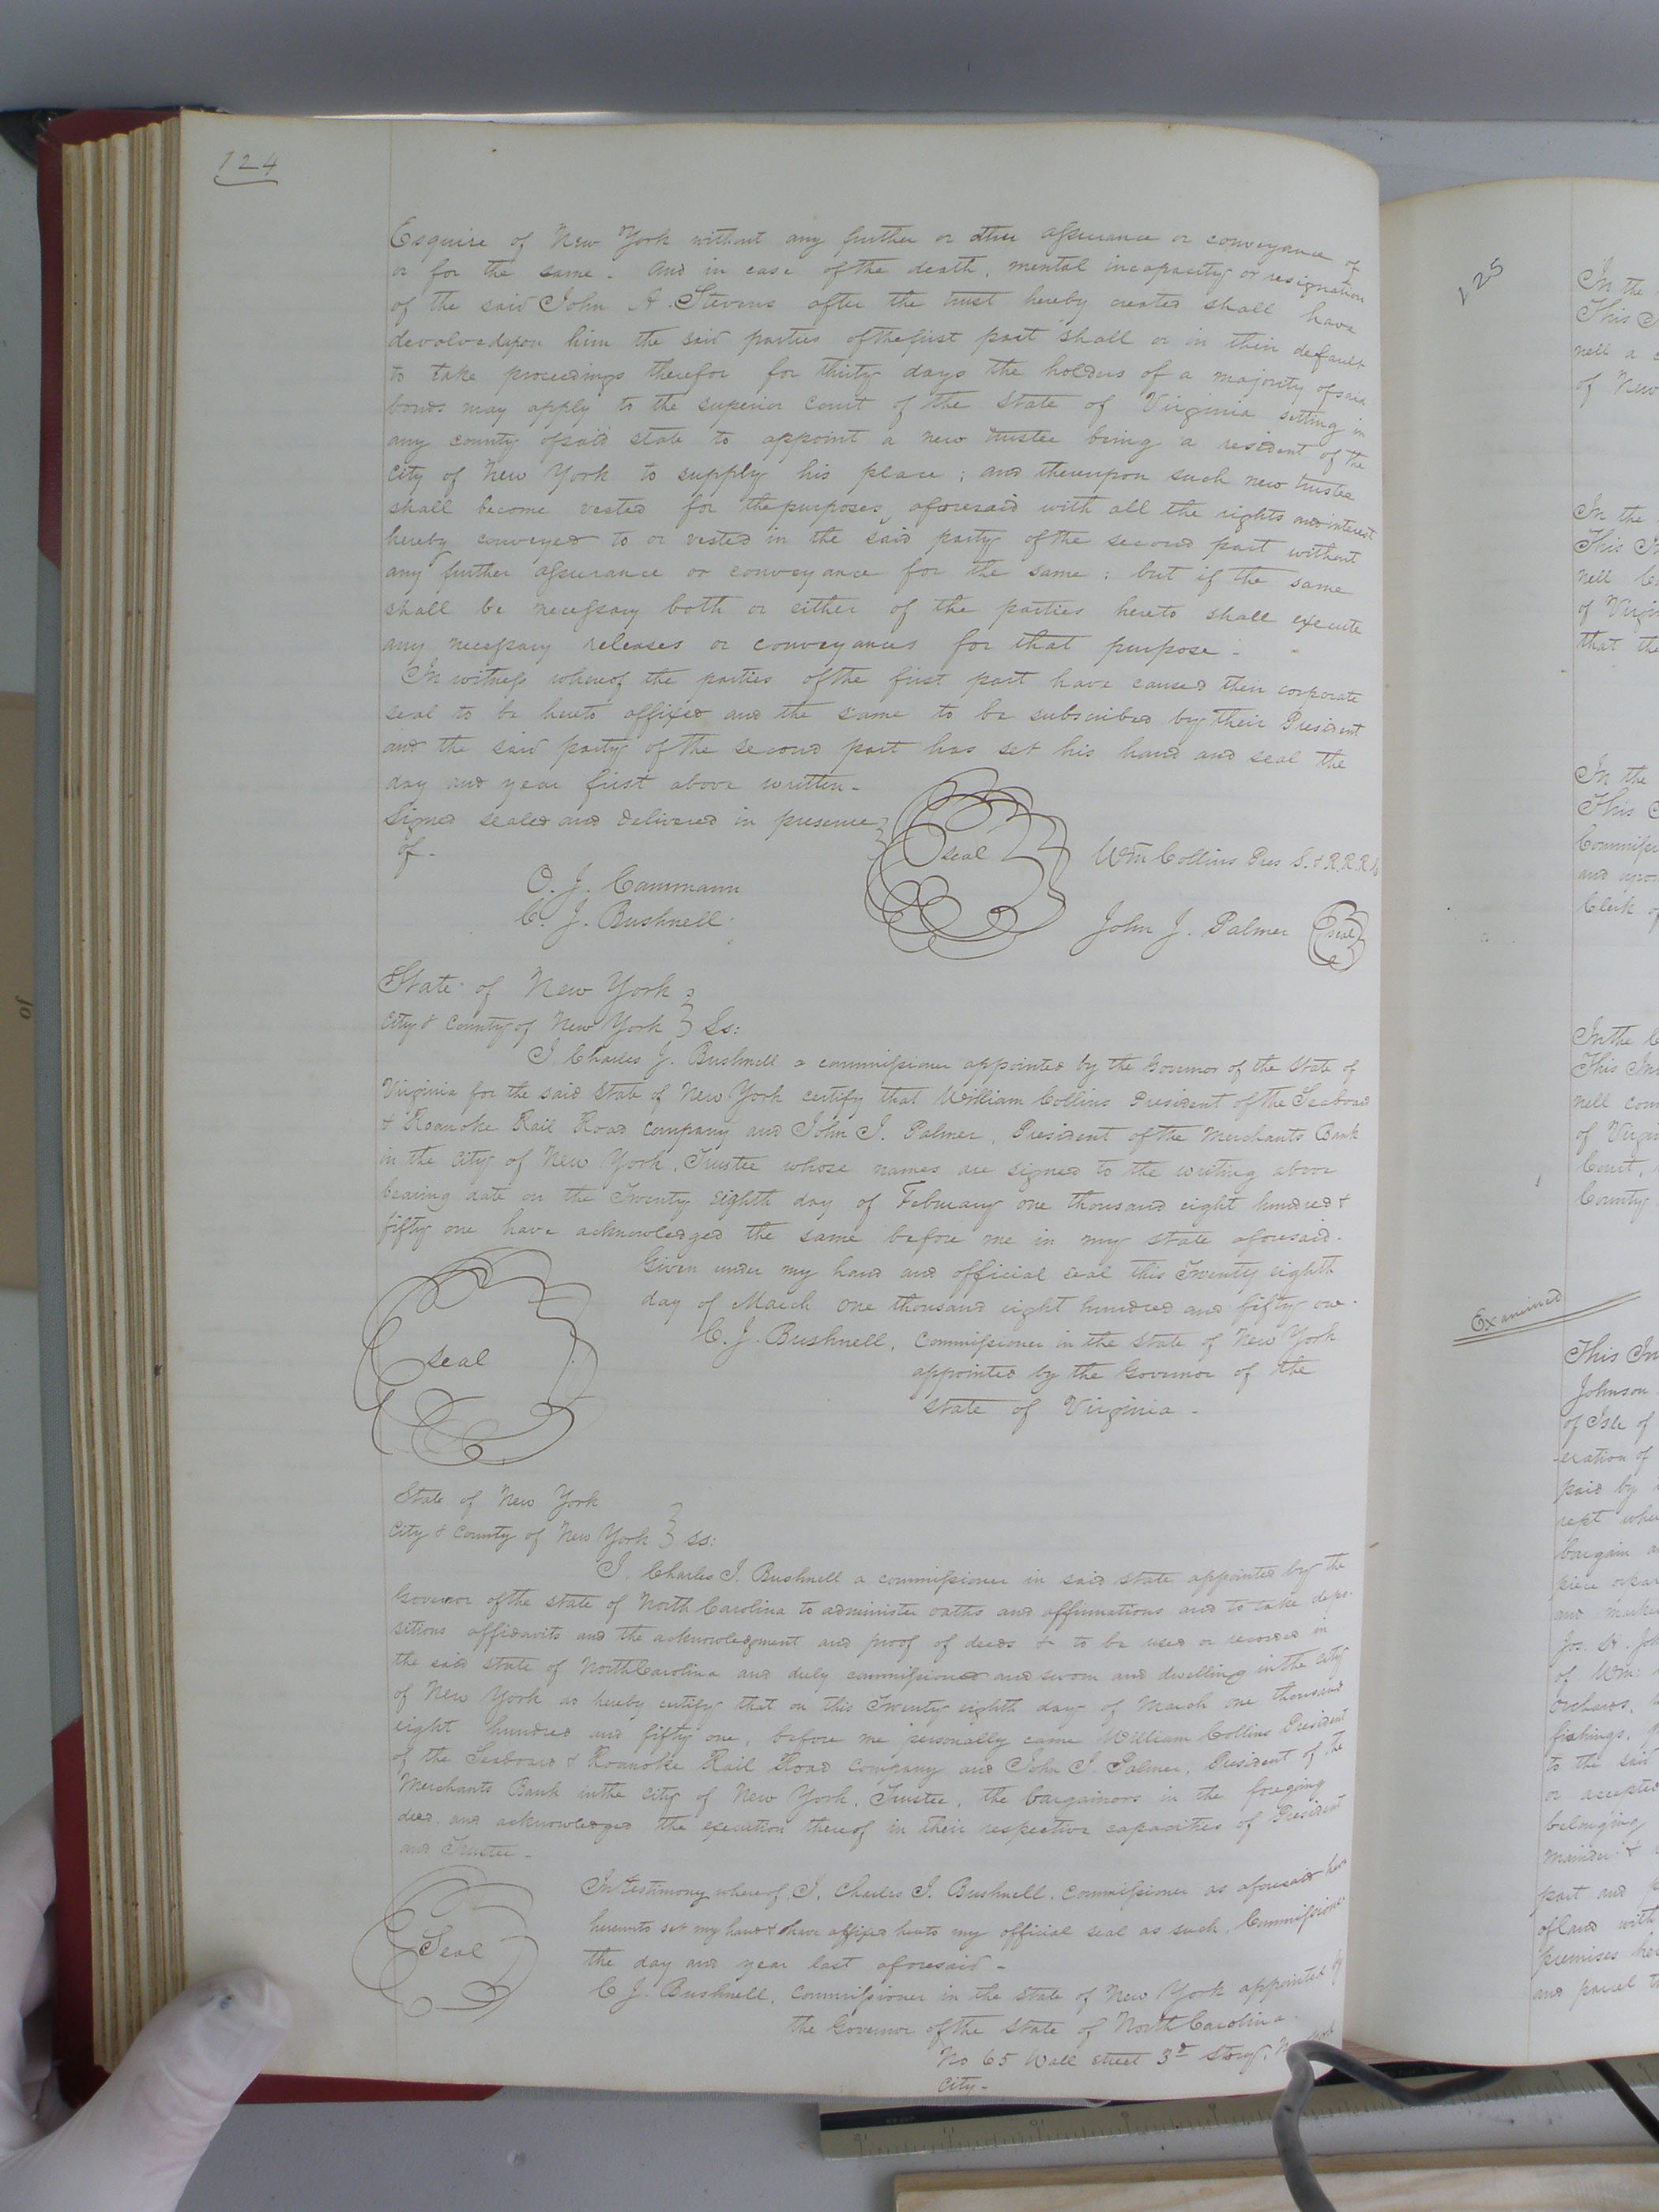 124
Esquire of New York without any further or other assurance or conveyance of
or for the same. And in case of the death, mental incapacity or resignation
of the said John A. Stevens after the trust hereby created shall have
devolved upon him the said parties of the first part shall or in their default
to take proceedings therefor for thirty days the holders of a majority of said
bonds may apply to the superior court of the state of Virginia setting in
any county of said state to appoint a new trustee being a resident of the
City of New York to supply his place; and thereupon such new trustee
shall become vested for the purposes aforesaid with all the rights and interest
hereby conveyed to or vested in the said party of the second part without
any further assurance or conveyance for the same: but if the same
shall be necessary both or either of the parties hereto shall execute
any necessary releases or conveyances for that purpose -
In witness whereof the parties of the first part have caused their corporate
seal to be hereto affixed and the same to be subscribed by their President
and the said party of the second part has set his hand and seal the
day and year first above written -
Signed sealed and delivered in presence
of -
O. J. Cammann
C. J. Bushnell
seal
Wm Collins Pres S. & R. R. R. Co
John J. Palmer seal
State of New York
City & County of New York } Ss:
I, Charles J. Bushnell a commissioner appointed by the Governor of the State of
Virginia for the said State of New York certify that William Collins President of the Seaboard
& Roanoke Rail Road Company and John J. Palmer, President of the Merchants Bank
in the City of New York, Trustee whose names are signed to the writing above
bearing date on the Twenty eighth day of February one thousand eight hundred &
fifty one have acknowledged the same before me in my state aforesaid.
Given under my hand and official seal this Twenty eighth
day of March one thousand eight hundred and fifty one.
seal
C. J. Bushnell, Commissioner in the State of New York
appointed by the Governor of the
State of Virginia -
State of New York
City & County of New York } ss:
I, Charles J. Bushnell a commissioner in said state appointed by the
Governor of the state of North Carolina to administer oaths and affirmations and to take depo-
sitions affidavits and the acknowledgment and proof of deeds & to be used or recorded in
the said state of North Carolina and duly commissioned and sworn and dwelling in the city
of New York do hereby certify that on this Twenty eighth day of March one thousand
eight hundred and fifty one, before me personally came William Collins President
of the Seaboard & Roanoke Rail Road Company and John J. Palmer, President of the
Merchants Bank in the City of New York, Trustee, the bargainors in the foregoing
deed and acknowledged the execution thereof in their respective capacities of President
and Trustee -
Seal
In testimony whereof, I, Charles J. Bushnell, Commissioner as aforesaid have
hereunto set my hand & have affixed hereto my official seal as such Commissioner
the day and year last aforesaid -
C J. Bushnell, Commissioner in the State of New York appointed by
the Governor of the State of North Carolina.
No 65 Wall Street 3d Story,
City -
125
In the
This
nell a
of New
In the
This In
nell
of Virgi
that the
In the
This
Commissi
and upon
Clerk of
In the
This In
nell com
of Virgi
Court,
County
Examined
This In
Johnson
of Isle of
-eration of
paid by
rept whe
bargain a
piece or par
and marke
Jos. H. Joh
of Wm:
Orchards,
fishings,
to the said
or accepted
belonging
mainder &
part and p
of land with
premises her
and parcel th